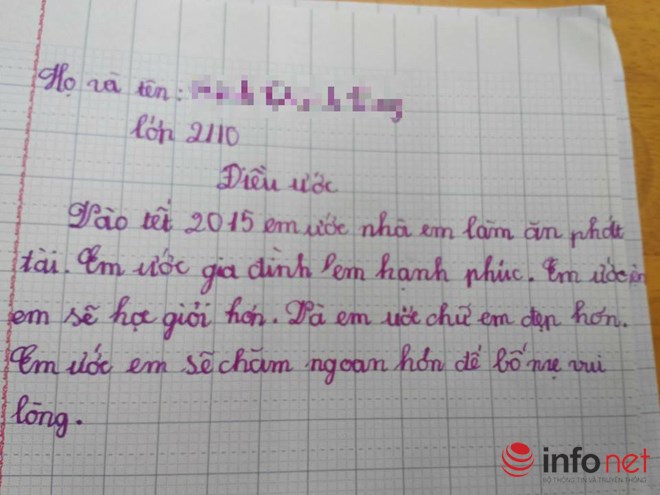 Họ và tên:
lớn 2/10
Diều ước
Vào tết 2015 em ước nhà em làm ăn phát
tài. Em ước gia đình em hạnh phúc. Em ước
em sẽ học giỏi hơn. Và em ước chữ em đẹp hơn.
Em ước em sẽ chăm ngoan hơn để bố mẹ vui
lòng.
infonet
BỘ THÔNG TIN VÀ TRUYỀN THÔNG